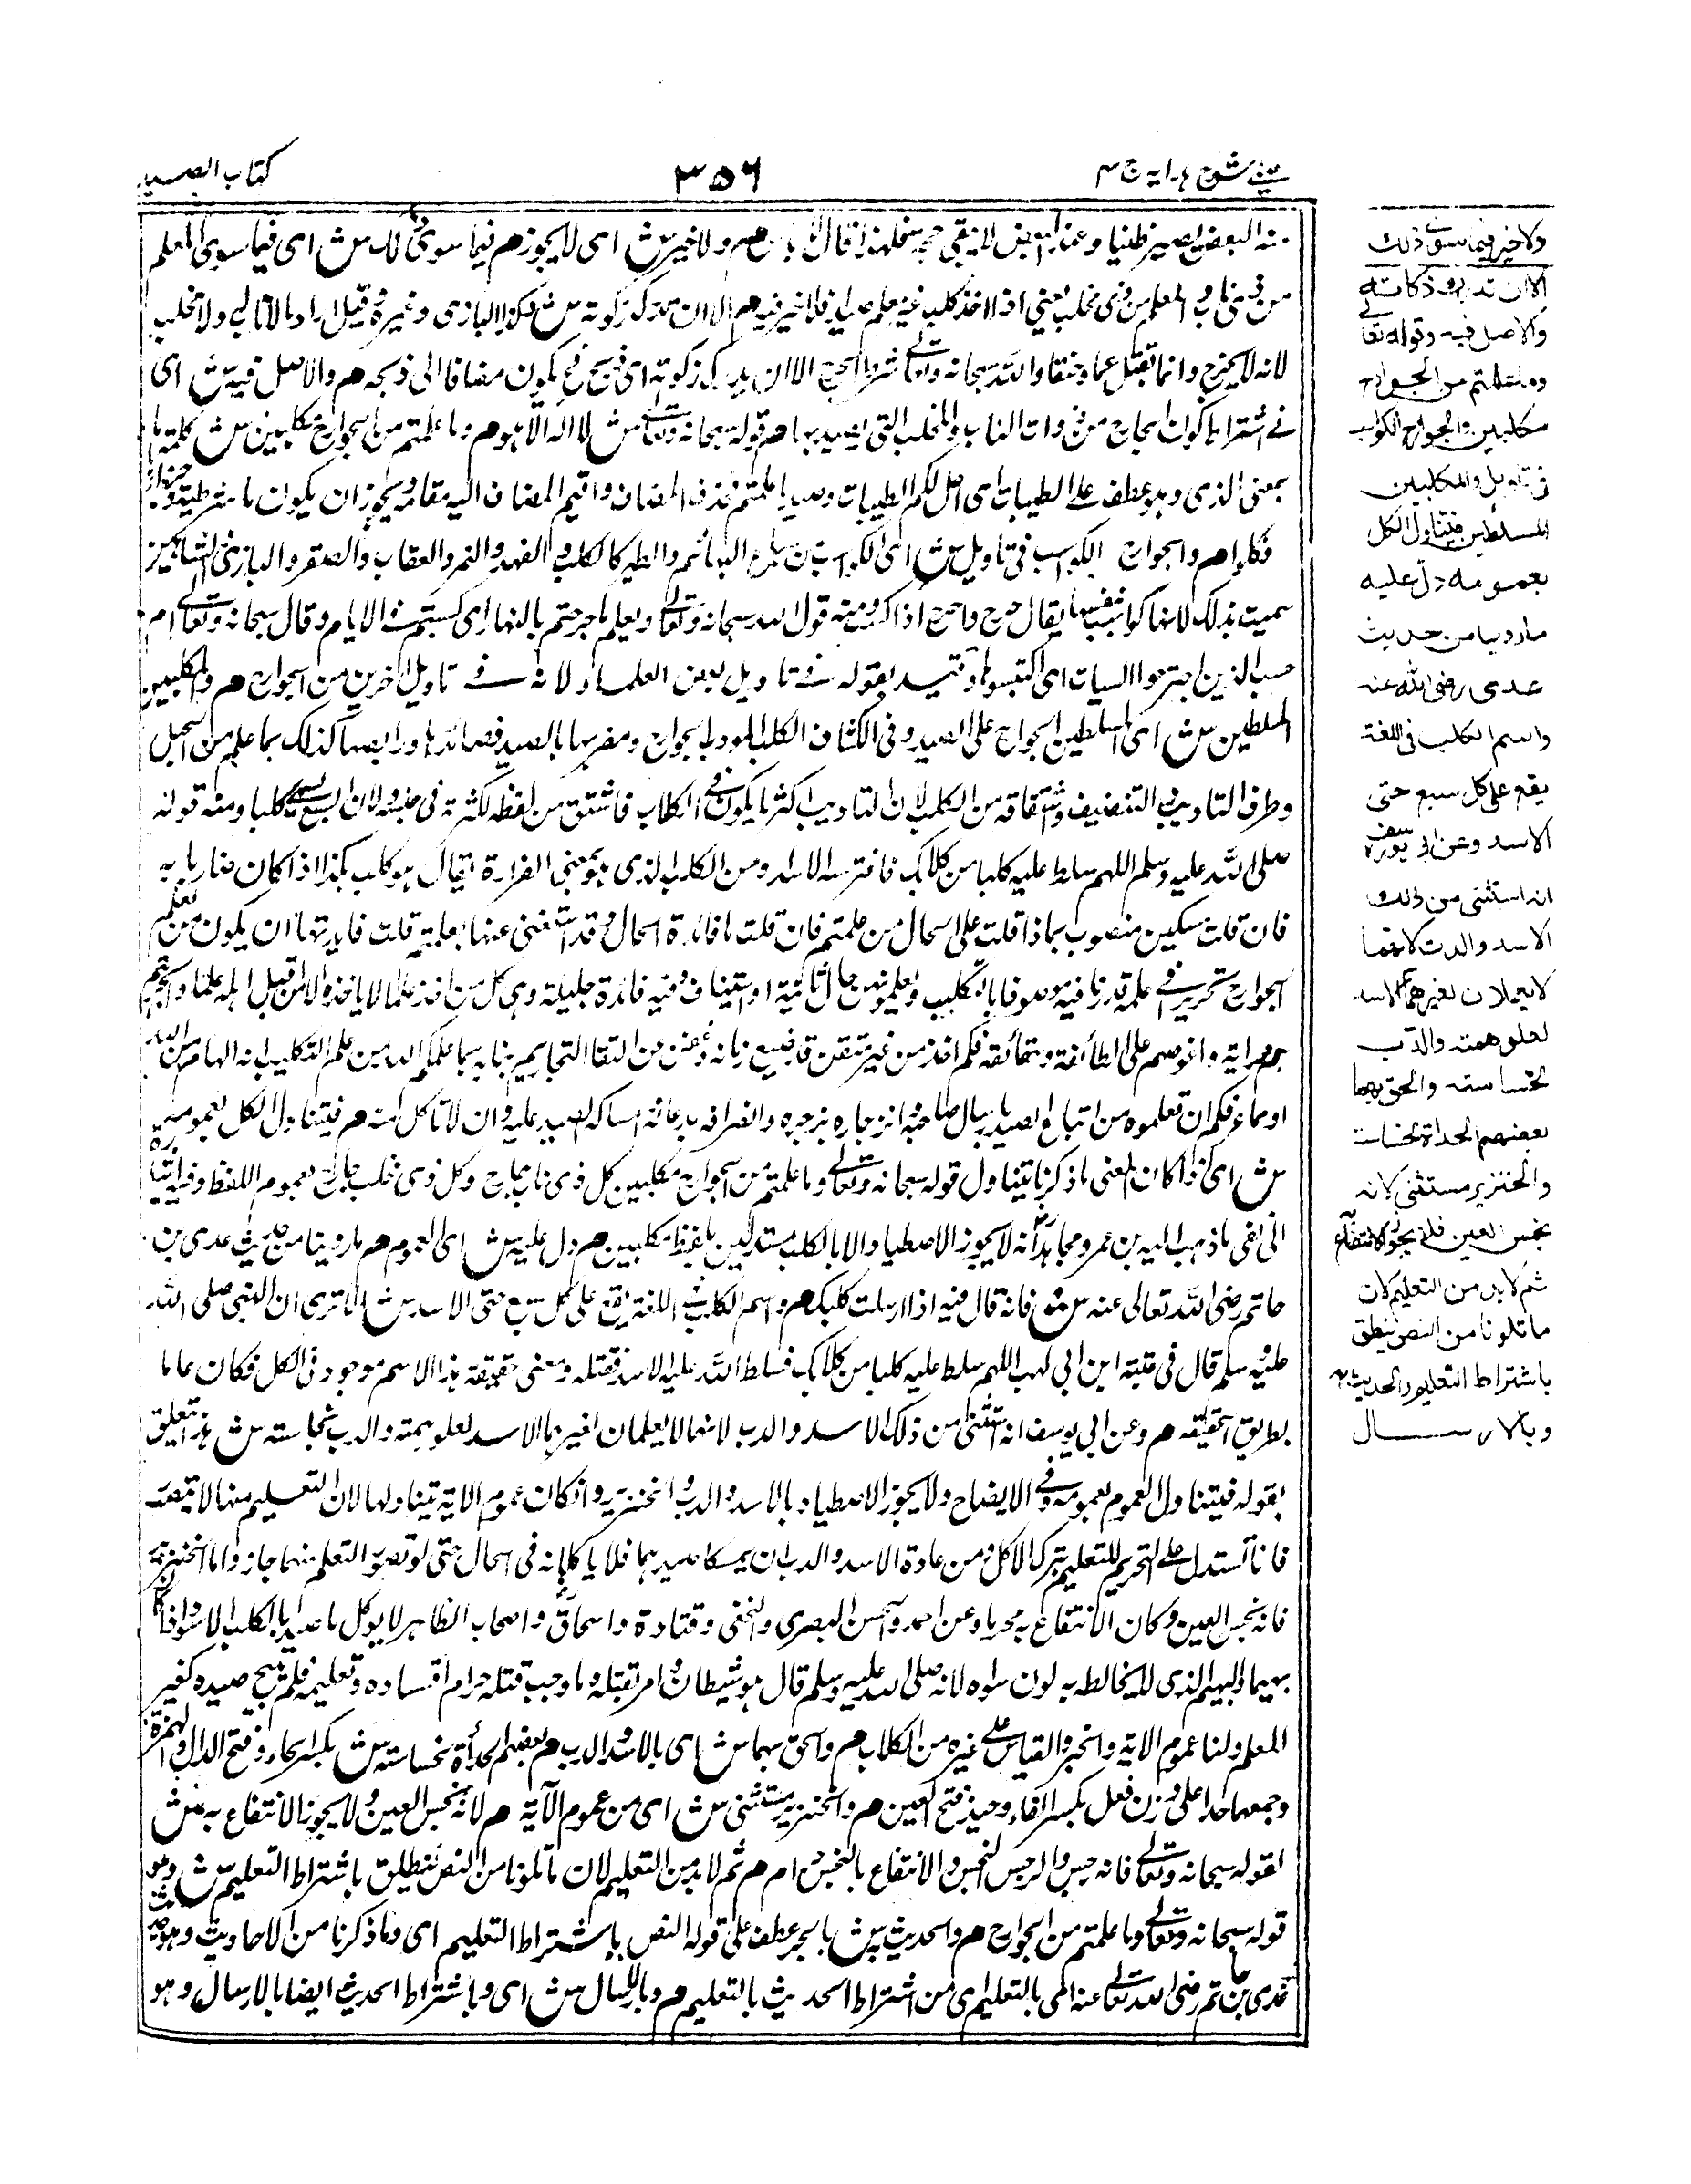 كتاب الصيد
٣٥٦
عينى شرح هدايه ج ٤
منه البعض يصير ظنيا وعند البعض لا يبقى حجة فلهذا قال لا باس م ولا خير ش اى لا يجوز م فيما سوى ذلك ش اى فيما سوى المعلم
من ذى ناب والمعلم من ذى مخلب يعنى اذا اخذ كلب غير معلم صيدا فلا خير فيه م الا ان تدرك زكوته ش وكذلك البازى وغيره وقيل اراد بالا ولا مخلب
لانه لا يخرج وانما يقتل غما وخنقا والله سبحانه وتعالى شرط الجرح الا ان يدرك زكوته اى فيذبح فح يكون مضافا الى ذبحه م والاصل فيه ش اى
فى اشتراط كون الجارح من ذوات الناب والمخلب التى يصيد بها م قوله سبحانه وتعالى ش لا اله الا هو م وما علمتم من الجوارح مكلبين ش كلمة ما
بمعنى الذى وهو عطف على الطيبات اى احل لكم الطيبات وصيد ما علمتم فحذف المضاف واقيم المضاف اليه مقامه ويجوز ان يكون ما شرطية وجزاؤه
فكلوا م والجوارح الكواسب فى تاويل ش اى الكواسب من سباع البهائم والطير كالكلب والفهد والنمر والعقاب والصقر والبازى والشاهين
سميت بذلك لانها كواسب بنفسها يقال جرح واجترح اذا كسب ومنه قول الله سبحانه وتعالى ويعلم ما جرحتم بالنهار اى كسبتم فى الايام وقال سبحانه وتعالى ام
حسب الذين اجترحوا السيات اى اكتسبوا وقيد بقوله فى تاويل بعض العلماء لانه فى تاويل اخرين من الجوارح م والمكلبين
المسلطين ش اى المسلطين الجوارح على الصيد وفى الكشاف المكلب المودب الجوارح ومضريها بالصيد لصاحبها ورايضها كذلك بما علم من الحيل
وطرق التاديب والتثقيف واشتقاقه من الكلب لان التاديب اكثر ما يكون فى الكلاب فاشتق من لفظه لكثرته فى جنسه ولان السبع يسمى كلبا ومنه قوله
صلى الله عليه وسلم اللهم سلط عليه كلبا من كلابك فافترسه الاسد ومن الكلب الذى هو بمعنى الضراوة يقال هو كلب بكذا اذا كان ضاريا به
فان قلت مكلبين منصوب بماذا قلت على الحال من علمتم فان قلت ما فائدة الحال وقد استغنى عنها بعلمتم قلت فايدتها ان يكون من يعلم
الجوارح نحريرا فى علمه مدربا فيه موصوفا بالتكليب وتعلمونهن حال ثانية او استيناف وفيه فائدة جليلة وهى كل من اخذ علما لا ياخذه الا من قبل اهله علما وابحرهم
دراية واغوصهم على لطائفه وحقائقه فكم اخذ من غير متقن قد ضيع زمانه وعض من التقاء التحارير بنابه مما علمكم الله من علم التكليب لانه الهام من الله
او مما عرفكم ان تعلموه من اتباع الصيد بارسال صاحبه وانزجاره بزجره وانصرافه بدعائه وامساكه الصيد عليه وان لا تاكل منه م فيتناول الكل بعمومه
ش اى اذا كان المعنى ما ذكرنا يتناول قوله سبحانه وتعالى وما علمتم من الجوارح مكلبين كل ذى ناب جارح وكل ذى مخلب جارح بعموم اللفظ وفيه اشارة
الى نفى ما ذهب اليه ابن عمر ومجاهد انه لا يجوز الاصطياد الا بالكلب مستدلين بلفظ مكلبين م دل عليه ش اى العموم م ما روينا من حديث عدى بن
حاتم رضى الله تعالى عنه ش فانه قال فيه اذا ارسلت كلبك م واسم الكلب فى اللغة يقع على كل سبع حتى الاسد ش الا ترى ان النبى صلى الله
عليه وسلم قال فى عتبة ابن ابى لهب اللهم سلط عليه كلبا من كلابك فسلط الله عليه الاسد فقتله ومعنى حقيقة هذا الاسم موجود فى الكل فكان عاما
بطريق الحقيقة م وعن ابى يوسف انه استثنى من ذلك الاسد والدب لانهما لا يعلمان لغيرهما الاسد لعلو همته والدب لخساسته ش هذا تعلق
بقوله فيتناول العموم بعمومه وفى الايضاح ولا يجوز الاصطياد بالاسد والدب والخنزير وان كان عموم الاية يتناولها لان التعليم منها لا يتصور
فانا نستدل على التحريم للتعليم بترك الاكل ومن عادة الاسد والدب ان يمسكا صيدهما فلا ياكلانه فى الحال حتى لو تصور التعلم منهما جاز واما الخنزير
فانه نجس العين وكان الانتفاع به محرما وعن احمد والحسن البصرى والنخعى وقتادة واسحاق واصحاب الظاهر لا يوكل ما صيد بالكلب الاسود اذا كان
بهيما والبهيم الذى لا يخالطه لون سواه لانه صلى الله عليه وسلم قال هو شيطان وامر بقتله وما وجب قتله حرام اقتناؤه وتعليمه فلم يبح صيده كغير
المعلم ولنا عموم الاية والخبر والقياس على غيره من الكلاب م والحق بهما ش اى بالاسد والدب م بعضهم الحدأة لخساسته ش بكسر الحاء وفتح الدال والهمزة
وجمعها حدا على وزن فعل بكسر الفاء وفتح العين م والخنزير مستثنى ش اى من عموم الآية م لانه نجس العين ولا يجوز الانتفاع به ش
لقوله سبحانه وتعالى فانه رجس والرجس النجس والانتفاع بالنجس حرام م ثم لا بد من التعليم لان ما تلونا من النص ينطق باشتراط التعليم ش وهو
قوله سبحانه وتعالى وما علمتم من الجوارح م والحديث به ش بالجر عطف على قوله النص باشتراط التعليم اى وما ذكرنا من الاحاديث وهو حديث
عدى بن حاتم رضى الله تعالى عنه الى بالتعليم اى من اشتراط الحديث بالتعليم م وبالارسال ش اى وباشتراط الحديث ايضا بالارسال وهو
ولا خير فيما سوى ذلك
الا ان تدرك ذكاته
والاصل فيه قوله تعالى
وما علمتم من الجوارح
مكلبين والجوارح الكواسب
فى تاويل والمكلبين
المسلطين فيتناول الكل
بعمومه دل عليه
ما روينا من حديث
عدى رضى الله عنه
واسم الكلب فى اللغة
يقع على كل سبع حتى
الاسد وعن ابى يوسف
انه استثنى من ذلك
الاسد والدب لانهما
لا يعملان لغيرهما الاسد
لعلو همته والدب
لخساسته والحق بهما
بعضهم الحداة لخساسته
والخنزير مستثنى لانه
نجس العين فلا يجوز الانتفاع به
ثم لا بد من التعليم لان
ما تلونا من النص ينطق
باشتراط التعليم والحديث به
وبالارسال